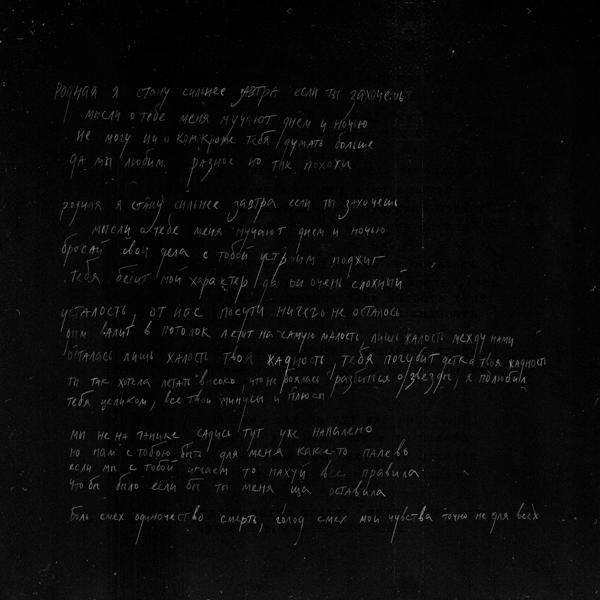 Родная я стану сильнее завтра если ты захочешь
мысли о тебе меня мучают днем и ночью
не могу ни о ком кроме тебя думать больше
да мы любим разное но так похожи
родная я стану сильнее завтра если ты захочешь
мысли о тебе меня мучают днем и ночью
бросай свои дела с тобой устроим поджиг
тебя бесит мой характер да он очень сложный
усталость, от нас почти ничего не осталось
дым валит в потолок летит на самую малость, лишь жалость между нами
осталась лишь жалость твоя жадность, тебя погубит детка твоя жадность
ты так хотела летать высоко, что не боялась разбиться о звёзды, я полюбил
тебя целиком, все твои минусы и плюсы
мы не на панике садись тут уже напалено
но нам с тобою быть для меня какое-то палево
если мы с тобой играем то нахуй все правила
что бы было если бы ты меня ща оставила
Боль смех одиночество смерть, голод смех мои чувства точно не для всех